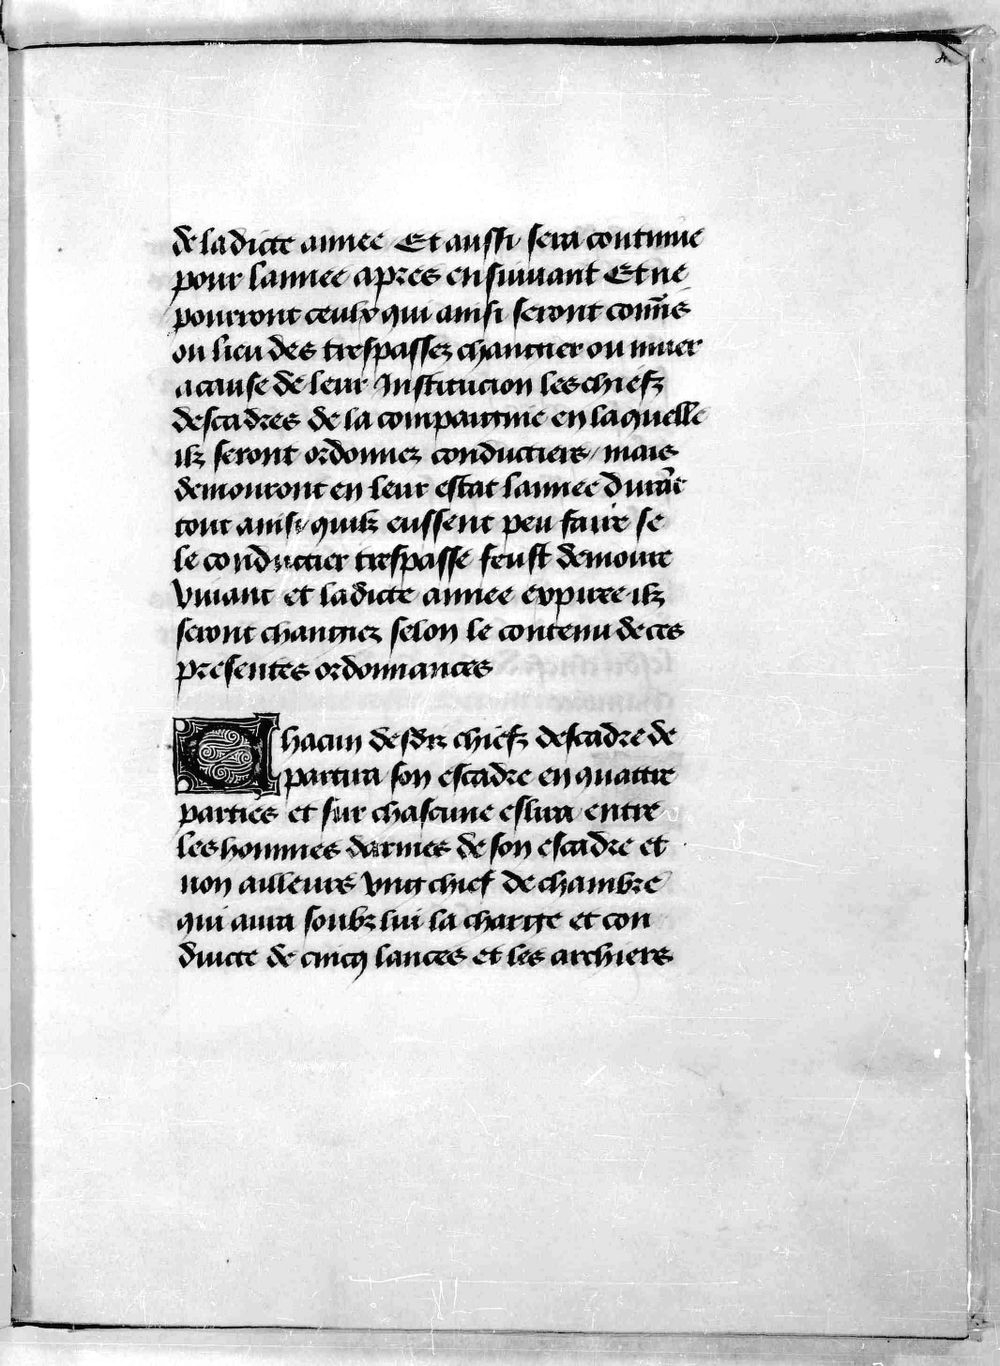 4
de ladicte annee Et aussi sera continue
pour lannee apres ensuiuant Et ne
pourront ceulx qui ainsi seront com̄is
ou lieu des trespassez changier ou muer
a cause de leur Institucion les chiefz
descadres de la compaignie en laquelle
ilz seront ordonnez conductiers / mais
demouront en leur estat lannee durāt
tout ainsi quilz eussent peu faire se
le conductier trespasse feust demoure
viuant et ladicte annee expiree ilz
seront changiez selon le contenu de ces
presentes ordonnances
Chacun desdiz chiefz descadre de
partira son escadre en quattre
parties et sur chascune eslira entre
les hommes darmes de son escadre et
non ailleurs vng chief de chambre
qui aura soubz lui la charge et con
duicte de cincq lances et les archiers